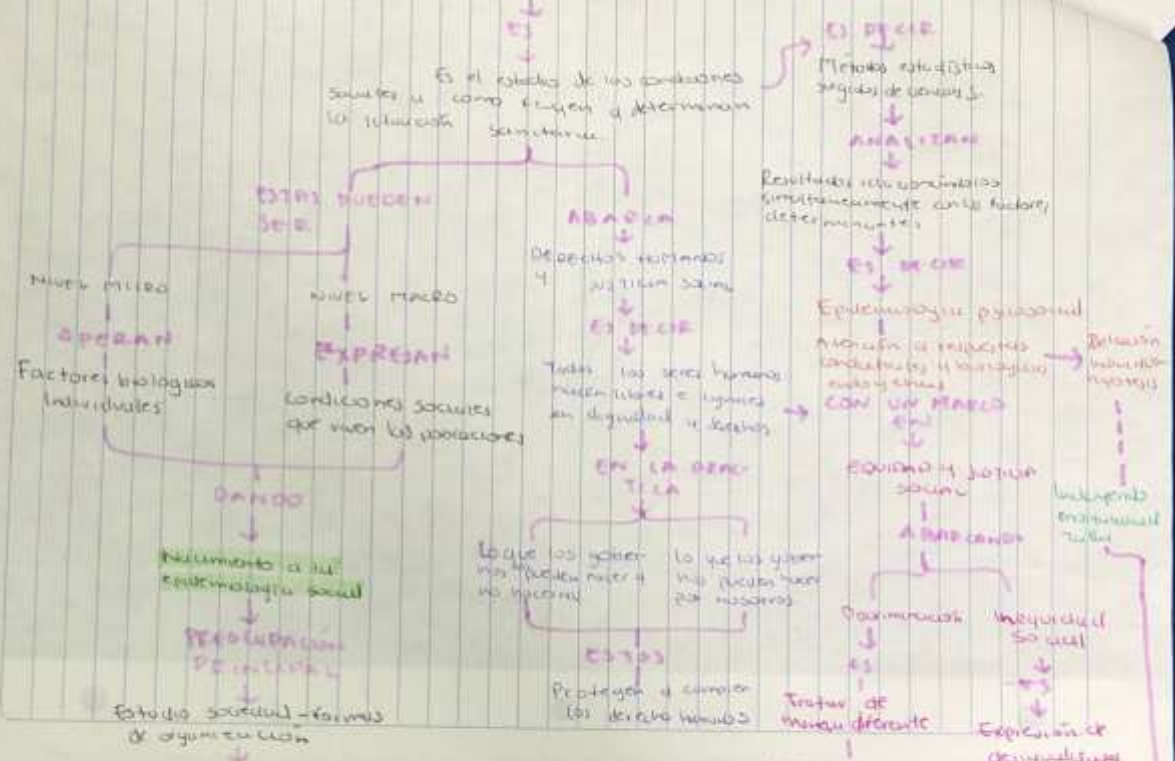 ES
Es el estudio de las condiciones
sociales y como influyen y determinan
la situación sanitaria
ESTAS PUEDEN
SER
NIVEL MICRO
OPERAN
Factores biologicos
Individuales
NIVEL MACRO
EXPRESAN
Condiciones sociales
que viven las poblaciones
DANDO
Nacimiento a la
epidemiología social
PREOCUPACIÓN
PRINCIPAL
Estudio sociedad - formas
de organización
ABARCA
DERECHOS HUMANOS
Y
ES DECIR
Todos los seres humanos
nacen libres e iguales
en dignidad y derechos
EN LA PRAC
TICA
Lo que los gobier
nos pueden hacer y
no hacernos
Lo que los gobier
nos pueden hacer
por nosotros
ESTOS
Protegen y cumplen
los derecho humanos
ES DECIR
Métodos estadísticos
surgidos de
ANALIZAN
Resultados
simultaneamente con los factores
determinantes
ES DECIR
Epidemiología psicosocial
Atención a respuestas
conductuales y biologicas
CON UN MARCO
EN
EQUIDAD Y JUSTICIA
SOCIAL
ABARCANDO
Discriminación
ES
Tratar de
manera diferente
Inequidad
Social
ES
Expresión de
Relación
Incluyendo